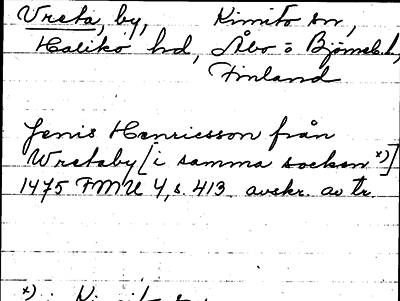 Vreta, by, Kimito sn,
Halikko hd, Åbo o Björneb. l,
Finland
Jenis Henricsson från
Wretaby [i samma socken *)]
1475 FMU 4, s. 413 avskr. av tr.
*) : Kimito